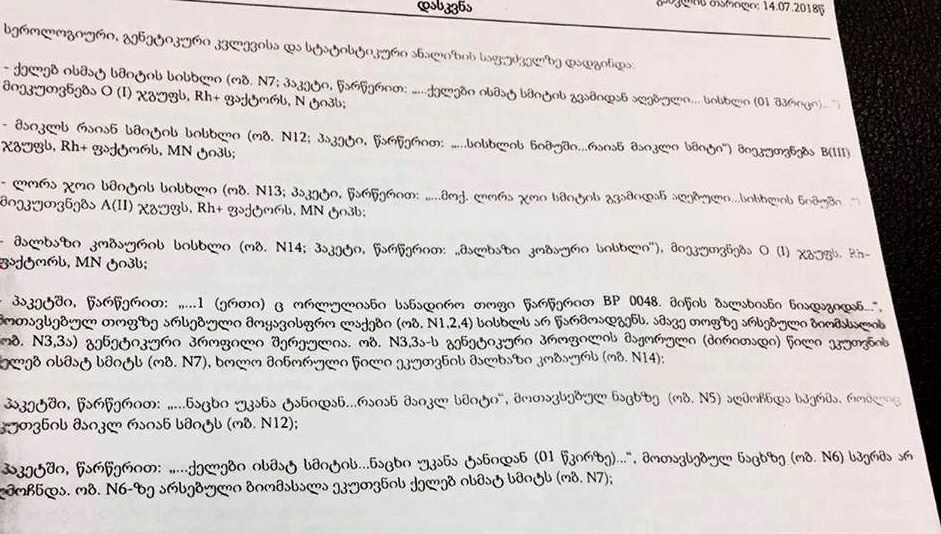 დასკვნა
გაცემის თარიღი: 14.07.2018წ
სეროლოგიური, გენეტიკური კვლევისა და სტატისტიკური ანალიზის საფუძველზე დადგინდა:
- ქელებ ისმატ სმიტის სისხლი (ობ. N7; პაკეტი, წარწერით: „....ქელები ისმატ სმიტის გვამიდან აღებული... სისხლი (01 შპრიცი)...")
მიეკუთვნება O (I) ჯგუფს, Rh+ ფაქტორს, N ტიპს;
- მაიკლს რაიან სმიტის სისხლი (ობ. N12; პაკეტი, წარწერით: „...სისხლის ნიმუში...რაიან მაიკლი სმიტი") მიეკუთვნება B(III)
ჯგუფს, Rh+ ფაქტორს, MN ტიპს;
- ლორა ჯოი სმიტის სისხლი (ობ. N13; პაკეტი, წარწერით: „....მოქ. ლორა ჯოი სმიტის გვამიდან აღებული...სისხლის ნიმუში...")
მიეკუთვნება A(II) ჯგუფს, Rh+ ფაქტორს, MN ტიპს;
- მალხაზი კობაურის სისხლი (ობ. N14; პაკეტი, წარწერით: „მალხაზი კობაური სისხლი"), მიეკუთვნება O (I) ჯგუფს, Rh-
ფაქტორს, MN ტიპს;
- პაკეტში, წარწერით: „...1 (ერთი) ც ორლულიანი სანადირო თოფი წარწერით BP 0048. მიწის ბალახიანი ნიადაგიდან...",
მოთავსებულ თოფზე არსებული მოყავისფრო ლაქები (ობ. N1,2,4) სისხლს არ წარმოადგენს. ამავე თოფზე არსებული ბიომასალის
ობ. N3,3ა) გენეტიკური პროფილი შერეულია. ობ. N3,3ა-ს გენეტიკური პროფილის მაჟორული (ძირითადი) წილი ეკუთვნის
ელებ ისმატ სმიტს (ობ. N7), ხოლო მინორული წილი ეკუთვნის მალხაზი კობაურს (ობ. N14);
პაკეტში, წარწერით: „...ნაცხი უკანა ტანიდან...რაიან მაიკლ სმიტი", მოთავსებულ ნაცხზე (ობ. N5) აღმოჩნდა სპერმა, რომელიც
კუთვნის მაიკლ რაიან სმიტს (ობ. N12);
პაკეტში, წარწერით: „...ქელები ისმატ სმიტის...ნაცხი უკანა ტანიდან (01 წკირზე)...", მოთავსებულ ნაცხზე (ობ. N6) სპერმა არ
ღმოჩნდა. ობ. N6-ზე არსებული ბიომასალა ეკუთვნის ქელებ ისმატ სმიტს (ობ. N7);